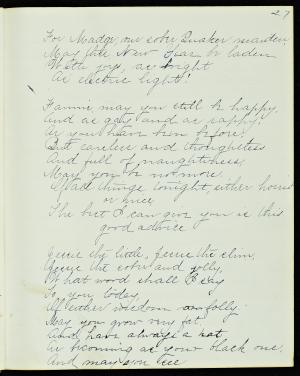 27
For Madge, our sober Quaker maiden,
May this New Year be laden
With joys, as bright
As electric light!
Fannie may you still be happy.
And as gay and as sappy
As you have been before.
But careless and thoughtless
And full of naughtiness,
May you be no more.
bad things tonight, either hour
or
The but I can give you is this
good advice
little, the slim,
the sober and jolly,
What word shall I say
To you today,
Of either wisdom or folly.
May you grow very fat,
And have always a hat
As becoming as your black one,
And may you